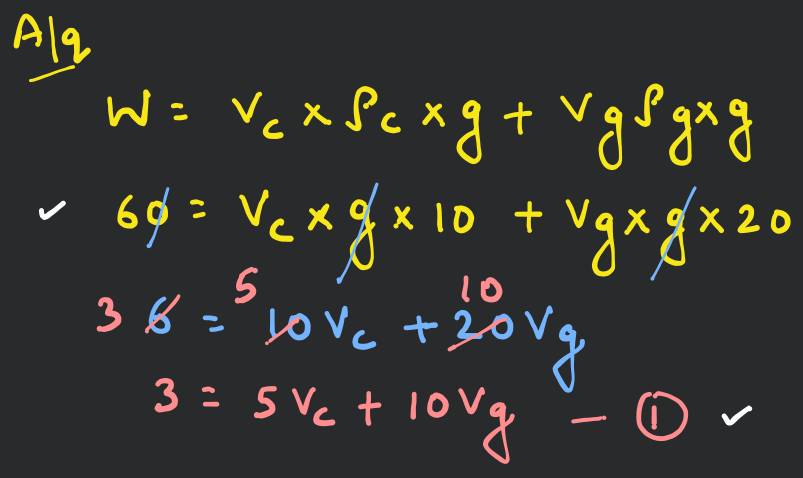 A/q
W = Vc × ρc × g + Vg ρg × g
✓ 60 = Vc × g × 10 + Vg × g × 20
5 10
3 6 = 10 Vc + 20 Vg
3 = 5 Vc + 10 Vg - ① ✓